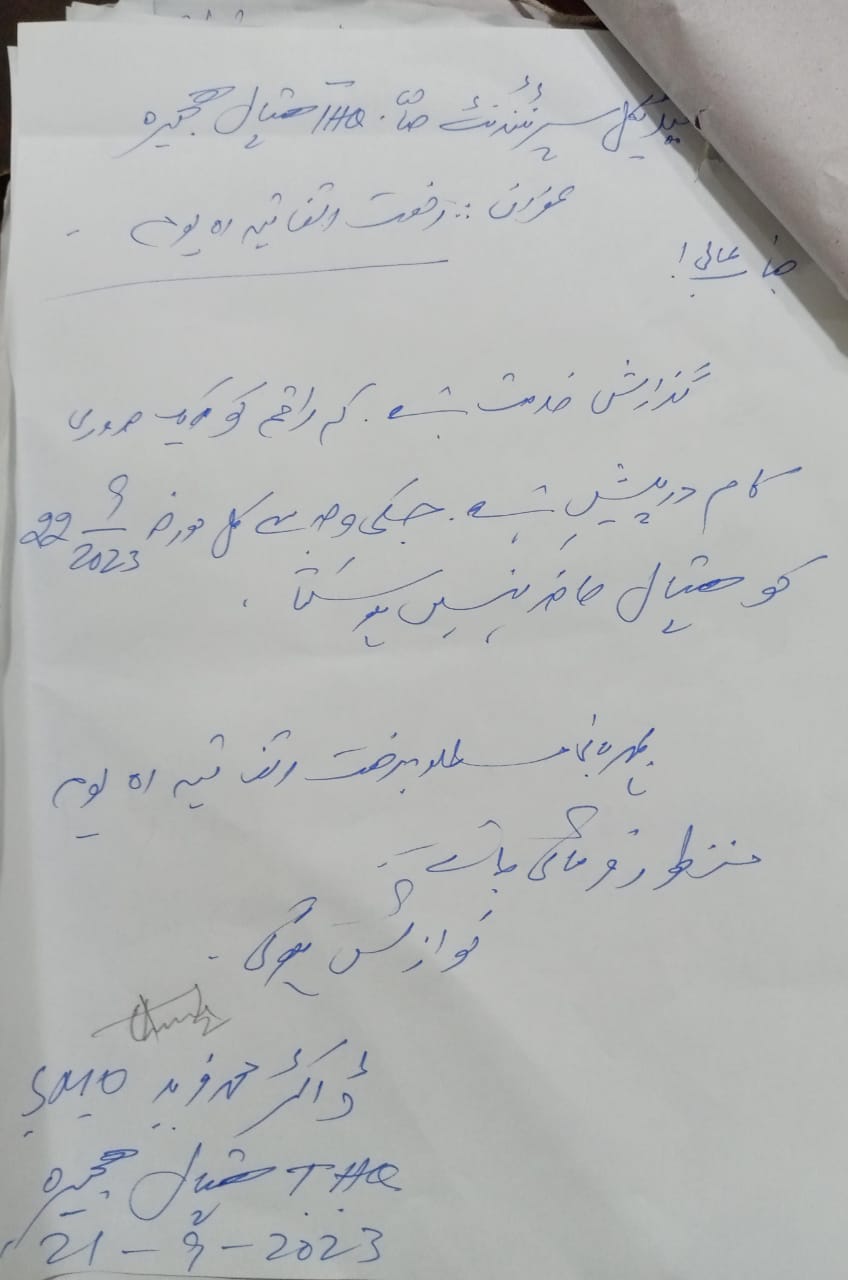 میڈیکل سپرنٹنڈنٹ صاحب THQ ہسپتال ہجیرہ
عنوان :: رخصت اتفاقیہ ۱ہ یوم
جناب عالی!
گذارش خدمت ہے۔ کہ راقم کو ایک ضروری
کام درپیش ہے۔ جسکی وجہ سے کل مورخہ 22 9/2023
کو ہسپتال حاضر نہیں ہو سکتا ۔
بمہربانی مطلوبہ رخصت اتفاقیہ ۱ہ یوم
منظور فرمائی جائے
نوازش ہوگی ۔
ڈاکٹر محمد فرید SMO
THQ ہسپتال ہجیرہ
21 - 9 - 2023